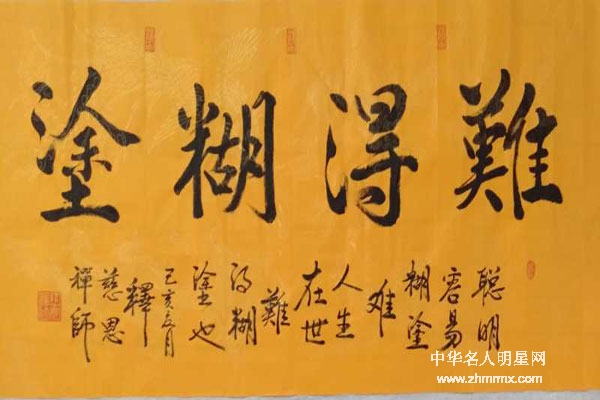 難得糊塗
聪明
容易
糊塗
难
人生
在世
難
得糊
塗也
己亥月
釋
慈恩
禪師
中华名人明星网
www.zhmmx.com